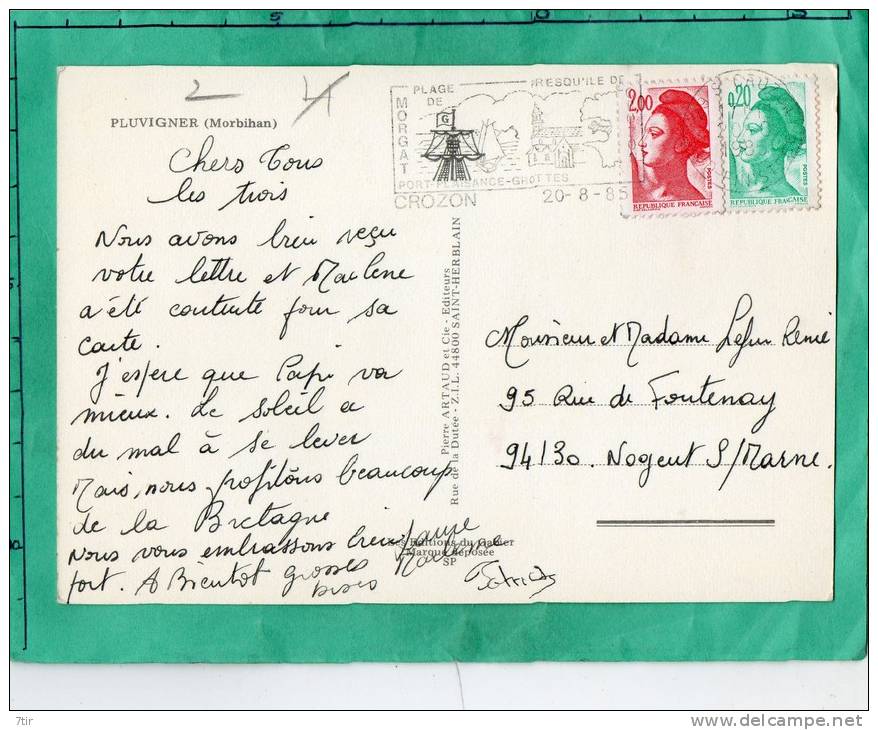 2 4
PLUVIGNER (Morbihan)
Chers Tous
les trois
Nous avons bien reçu
votre lettre et Marlene
a été contente pour sa
carte.
J'espere que Papi va
mieux. Le soleil a
du mal à se lever
Mais, nous profitons beaucoup
de la Bretagne
Nous vous embrassons bien
fort. A Bientot grosses
bises
Marlene
Patrick
Pierre ARTAUD et Cie - Editeurs
Rue de la Dutée - Z.I.L. 44800 SAINT-HERBLAIN
Les Editions du Gabier
Marque déposée
SP
PLAGE
DE
MORGAT
PRESQU'ILE DE
G
PORT-PLAISANCE-GROTTES
CROZON
20-8-85
2,00
POSTES
REPUBLIQUE FRANÇAISE
0,20
POSTES
REPUBLIQUE FRANÇAISE
Monsieur et Madame René
95 Rue de Fontenay
94130. Nogent S/Marne.
7tir
http://www.delcampe.net